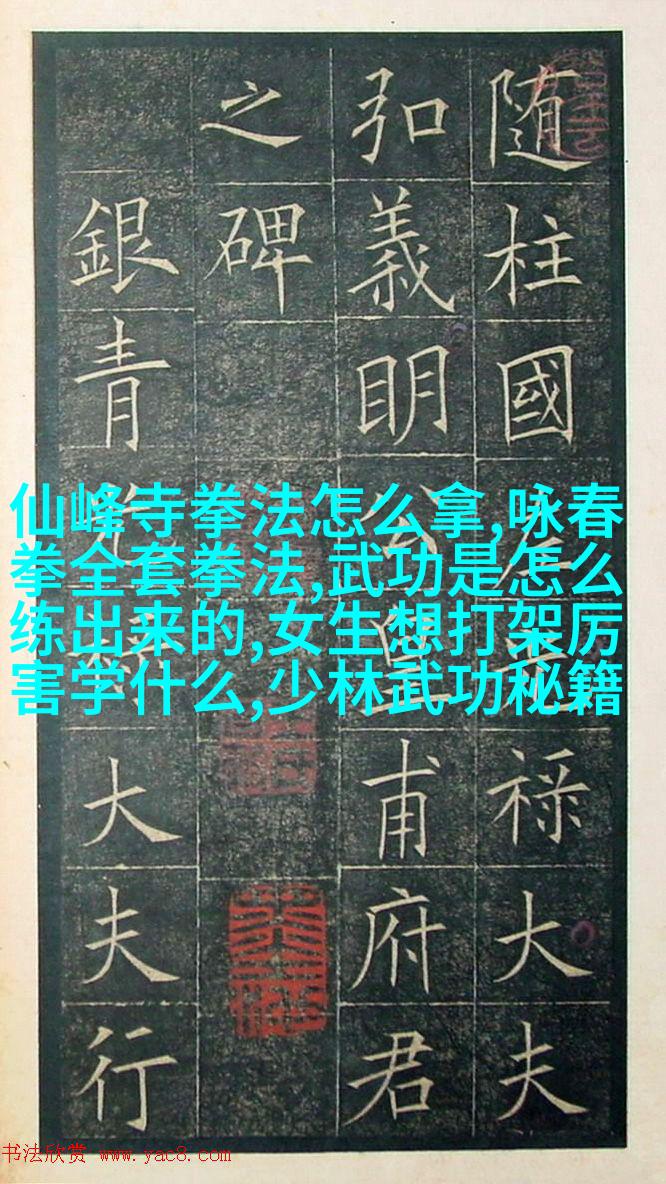 随柱國左光祿大夫
弘義明公皇甫府君
之碑
銀青光祿大夫行
仙峰寺拳法怎么拿,咏春
拳全套拳法,武功是怎么
练出来的,女生想打架厉
害学什么,少林武功秘籍
书法欣赏 www.yac8.com